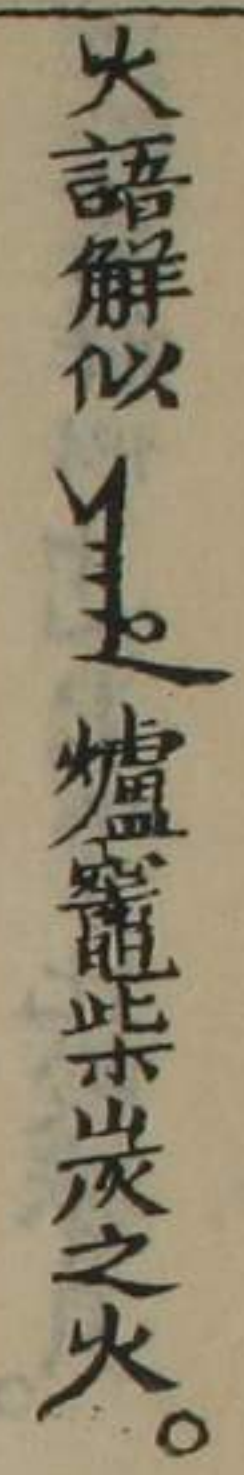 火語解似 ᠶᠠᡥᠠ 爐竈柴炭之火。